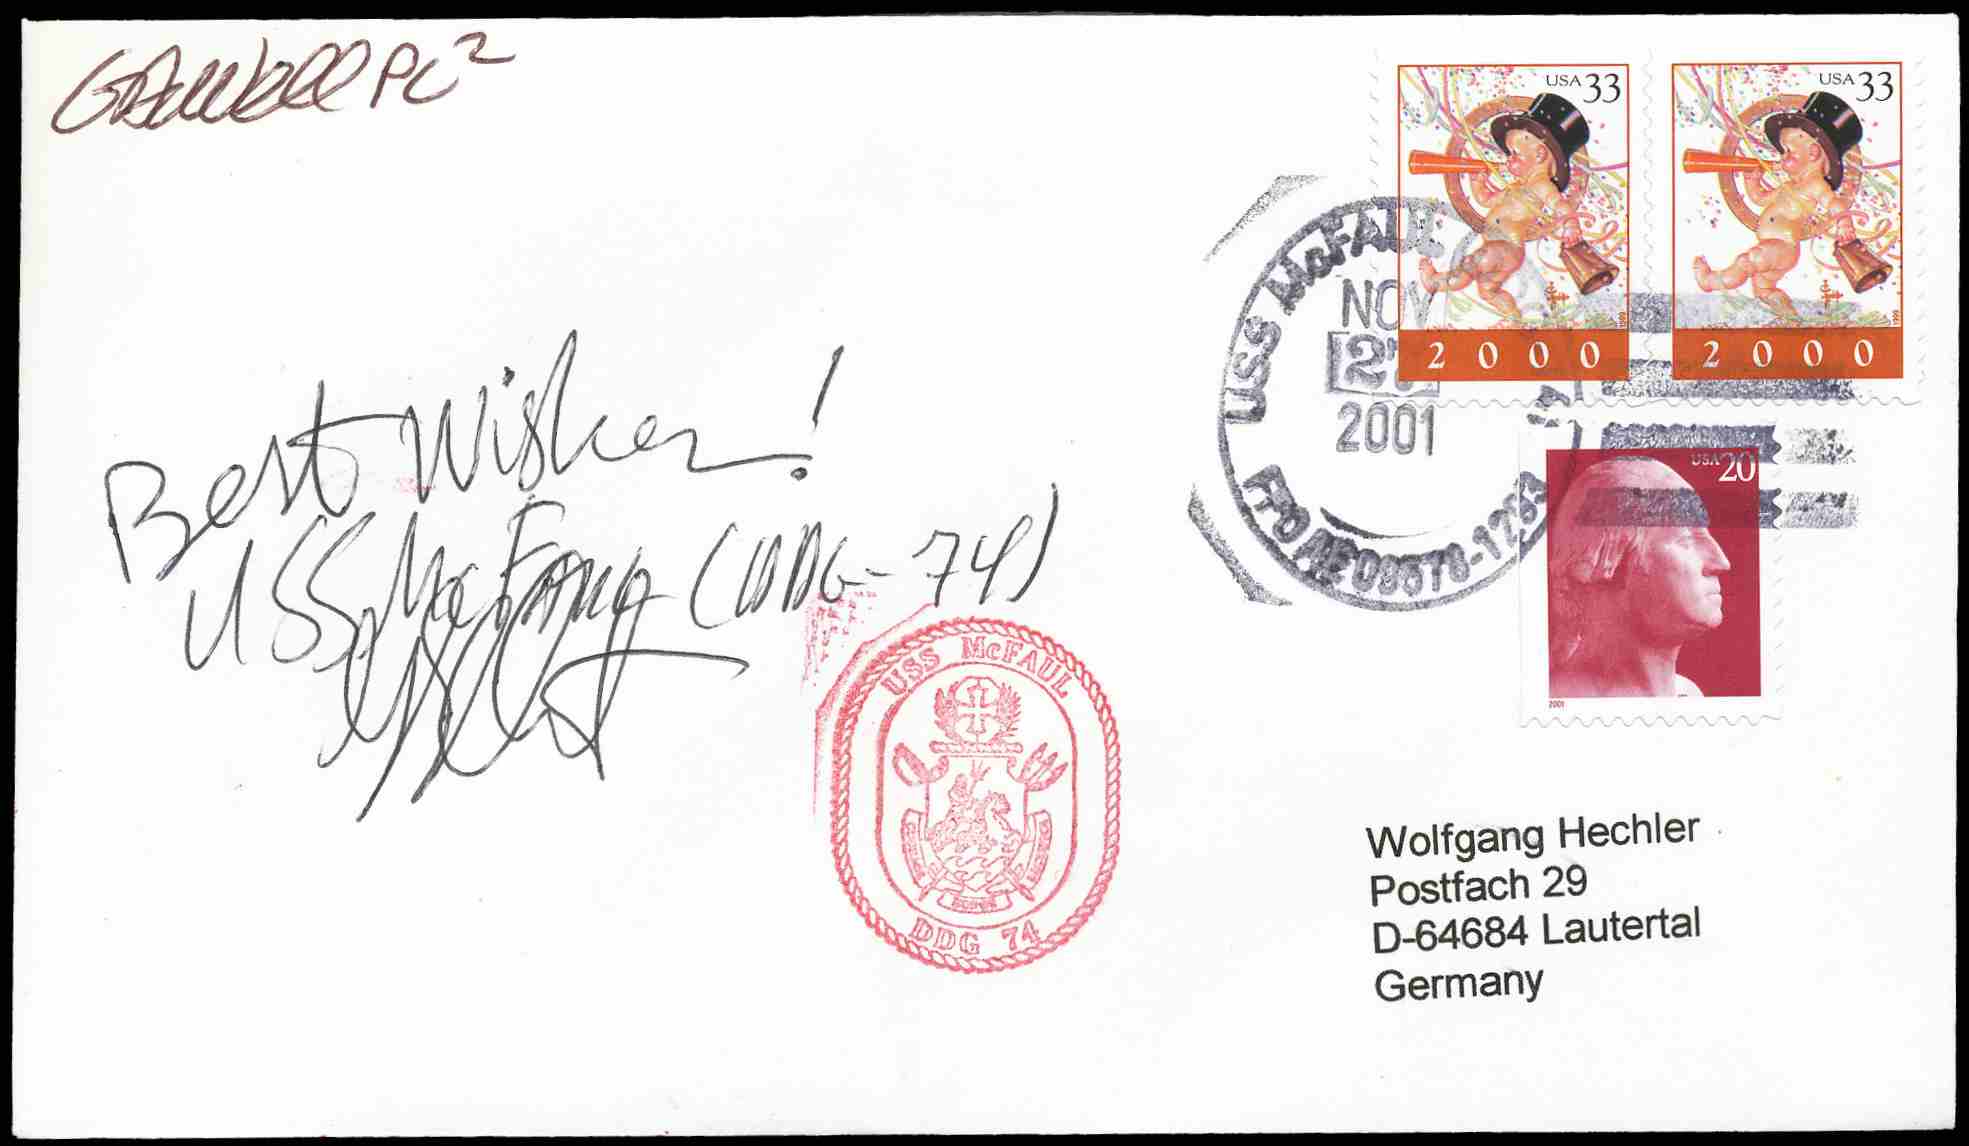 PC2
USA 33
2000
USA 33
2000
USS McFAUL
NOV
27
2001
FPO AE 09578-1263
USA 20
2001
Best Wishes!
USS McFAUL (DDG-74)
USS McFAUL
DDG 74
Wolfgang Hechler
Postfach 29
D-64684 Lautertal
Germany